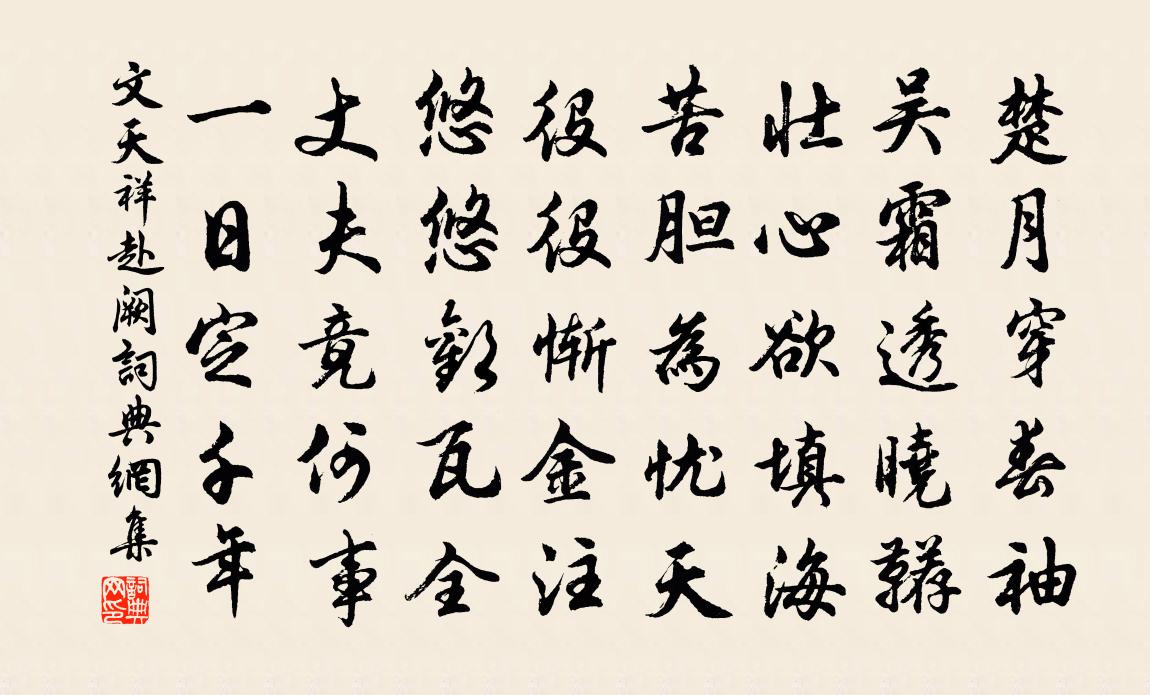 楚月穿春袖
吴霜透曉鞯
壮心欲填海
苦胆為忧天
役役慚金注
悠悠歎瓦全
丈夫竟何事
一日定千年
文天祥赴闕詞典網集
詞典网印